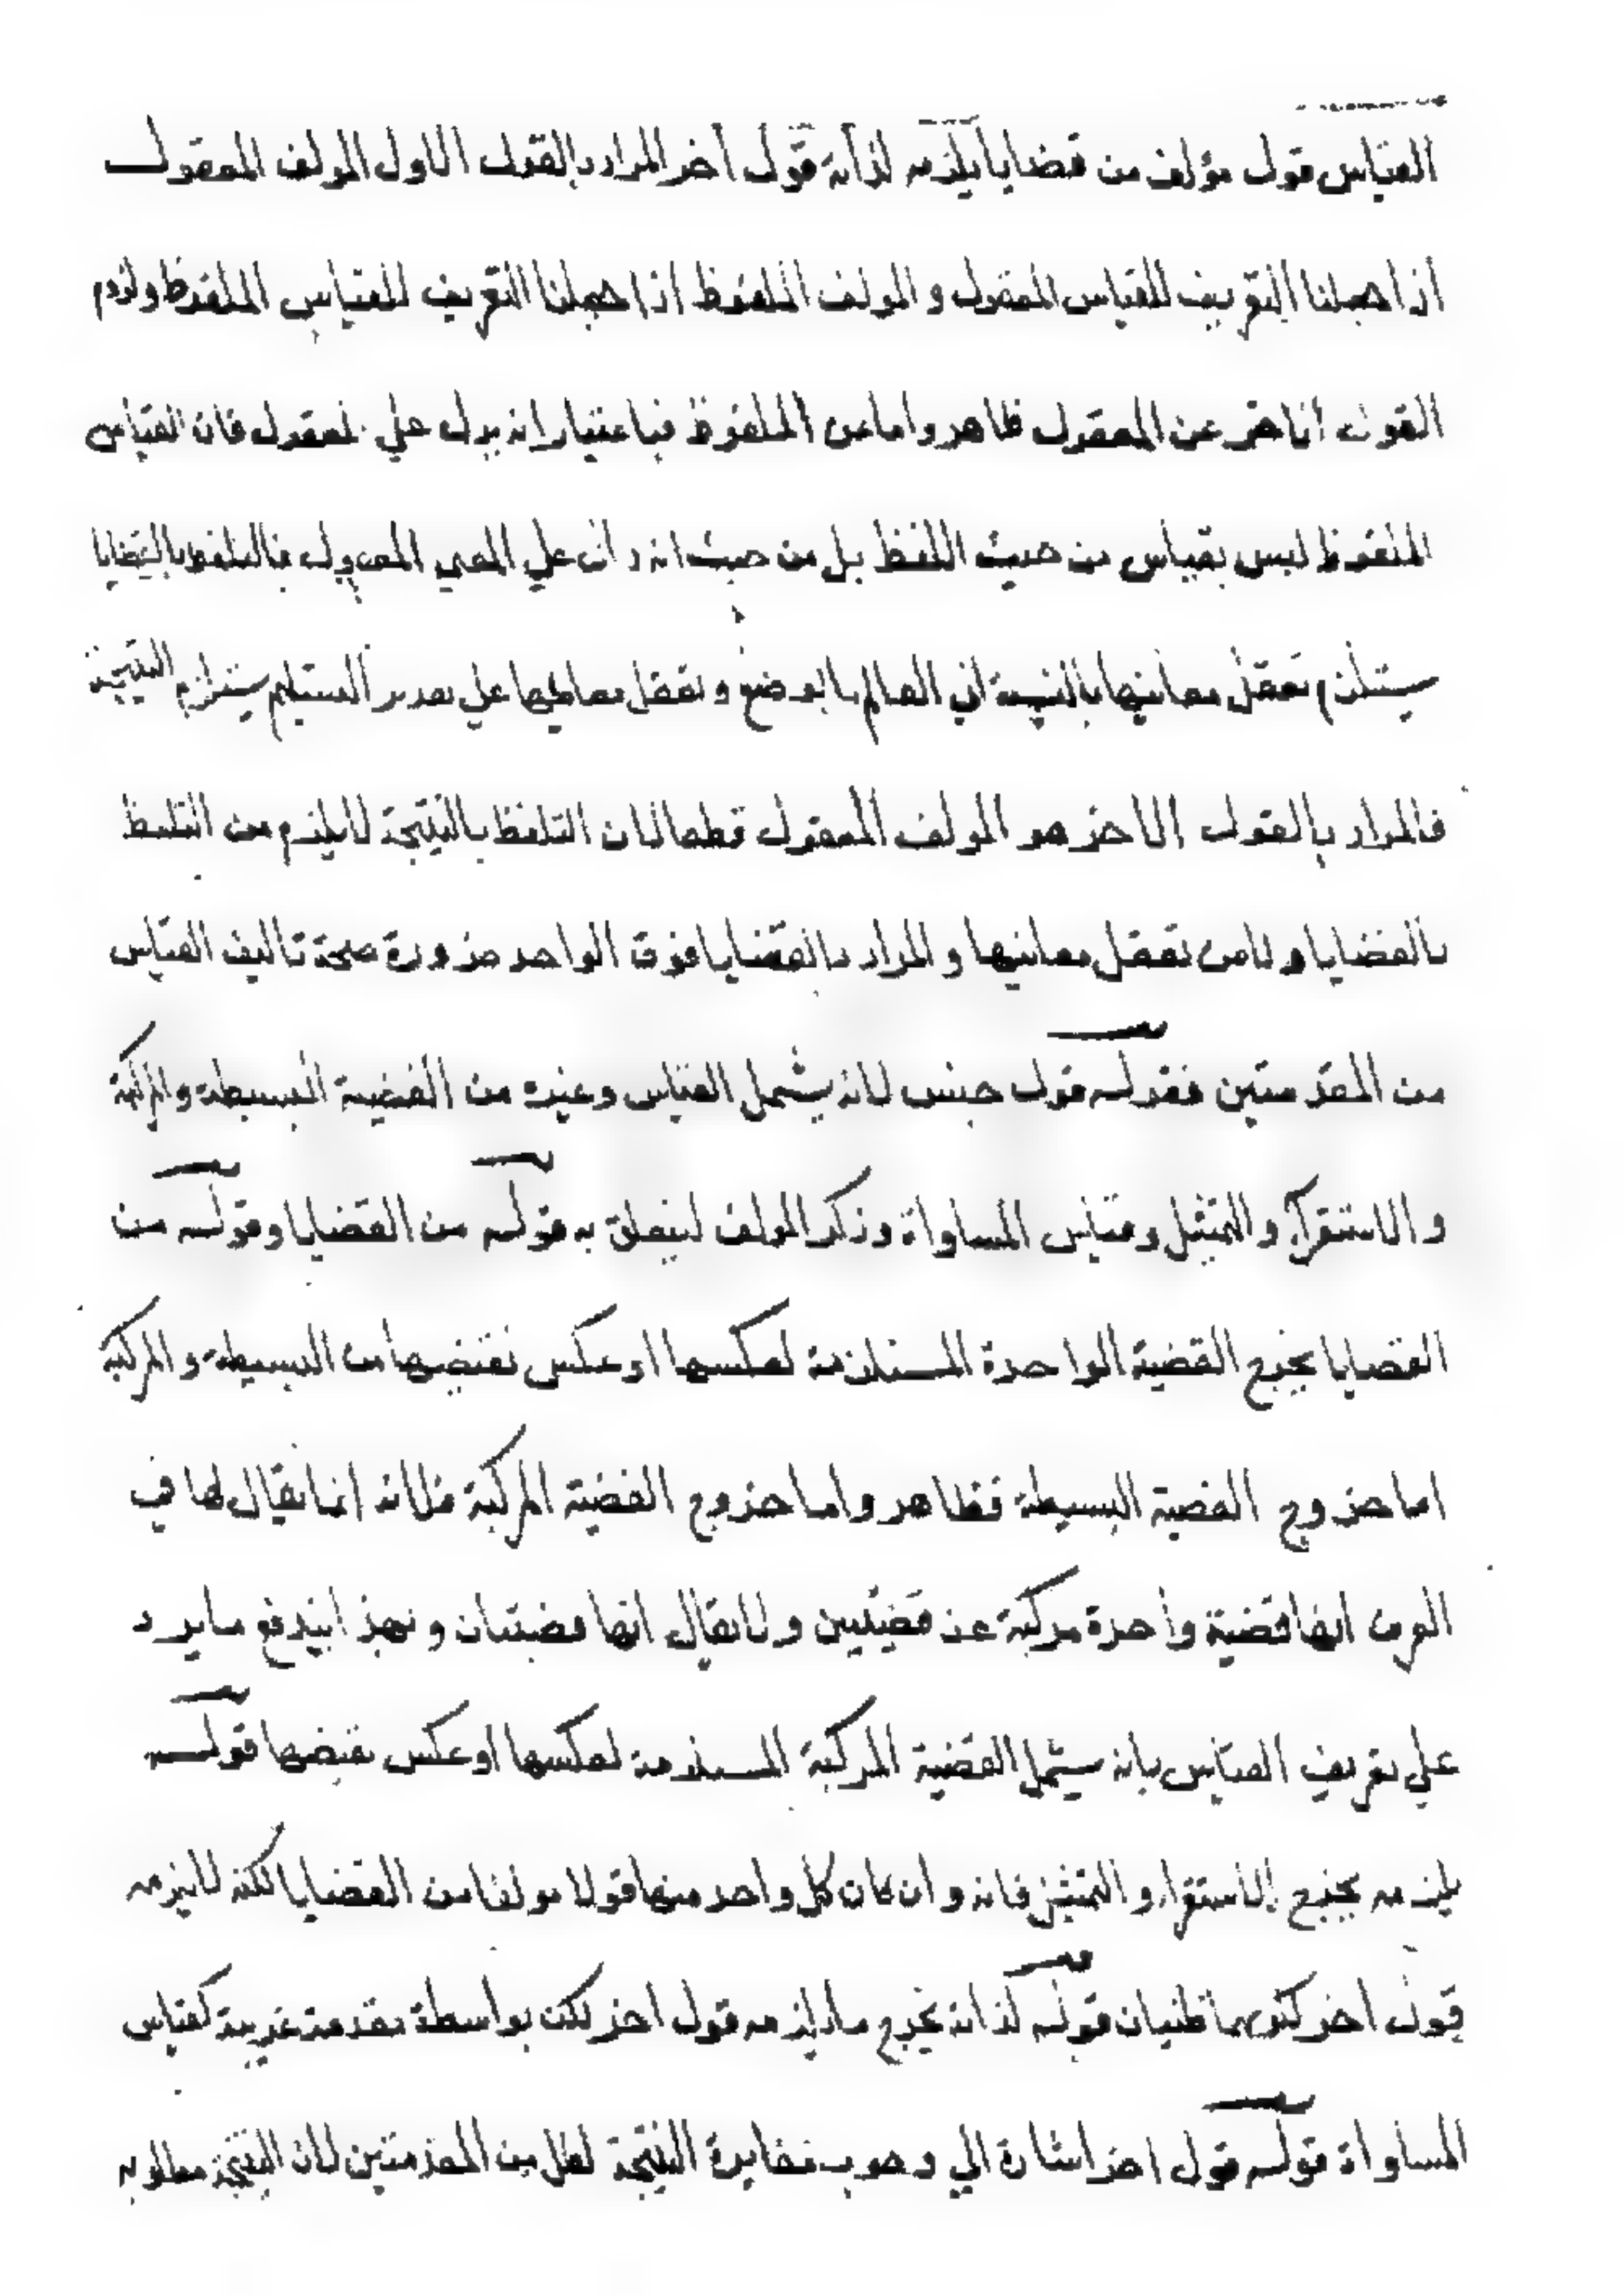 القياس قول مؤلف من قضايا يلزمه لذاته قول آخر المراد بالقول الاول المولف المعقول
اذا جعلنا التعريف للقياس المعقول والمولف الملفوظ اذا جعلنا التعريف للقياس الملفوظ ولزوم
القول الاخر عن المعقول ظاهر واما عن الملفوظ فباعتبار انه يدل علي المعقول فان القياس
الملفوظ ليس بقياس من حيث اللفظ بل من حيث انه دال علي المعني المعقول فالتلفظ بالقضايا
يستلزم تعقل معانيها بالنسبة الي العالم بالوضع وتعقل معانيها علي تقدير التسليم يستلزم النتيجة
فالمراد بالقول الاخر هو المولف المعقول قطعا لان التلفظ بالنتيجة لا يلزم من التلفظ
بالقضايا ولا من تعقل معانيها والمراد بالقضايا فوق الواحد ضرورة صحة تاليف القياس
من المقدمتين فقوله قول جنس لانه يشمل القياس وغيره من القضية البسيطة والمركبة
والاستقرآء والتمثيل وقياس المساواة وذكر المولف ليتعلق به قوله من القضايا وقوله من
القضايا يخرج القضية الواحدة المستلزمة لعكسها او عكس نقيضها من البسيطة والمركبة
اما خروج القضية البسيطة فظاهر واما خروج القضية المركبة فلانه انما يقال لها في
العرف انها قضية واحدة مركبة عن قضيتين ولا يقال انها قضيتان وبهذا يندفع ما يرد
علي تعريف القياس بانه يشمل القضية المركبة المستلزمة لعكسها او عكس نقيضها قوله
يلزمه يخرج الاستقراء والتمثيل فانه وان كان كل واحد منها قولا مولفا من القضايا لكنه لا يلزمه
قول اخر لكونهما ظنيان قوله لذاته يخرج ما يلزمه قول اخر لكن بواسطة مقدمة غريبة كقياس
المساواة قوله قول اخر اشارة الي وجوب مغايرة النتيجة لكل من المقدمتين لان النتيجة مطلوبه